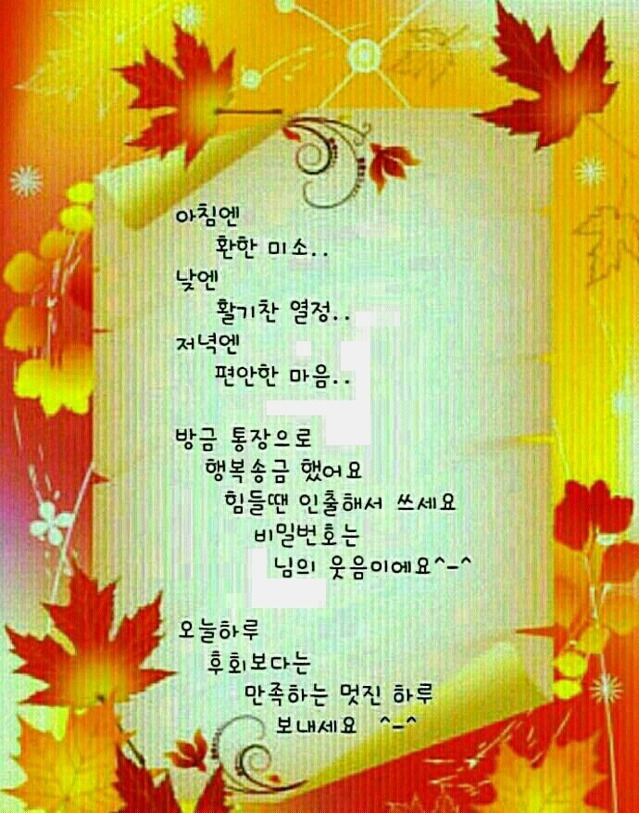 아침엔
환한 미소..
낮엔
활기찬 열정..
저녁엔
편안한 마음..
방금 통장으로
행복송금 했어요
힘들땐 인출해서 쓰세요
비밀번호는
님의 웃음이에요^-^
오늘하루
후회보다는
만족하는 멋진 하루
보내세요 ^-^